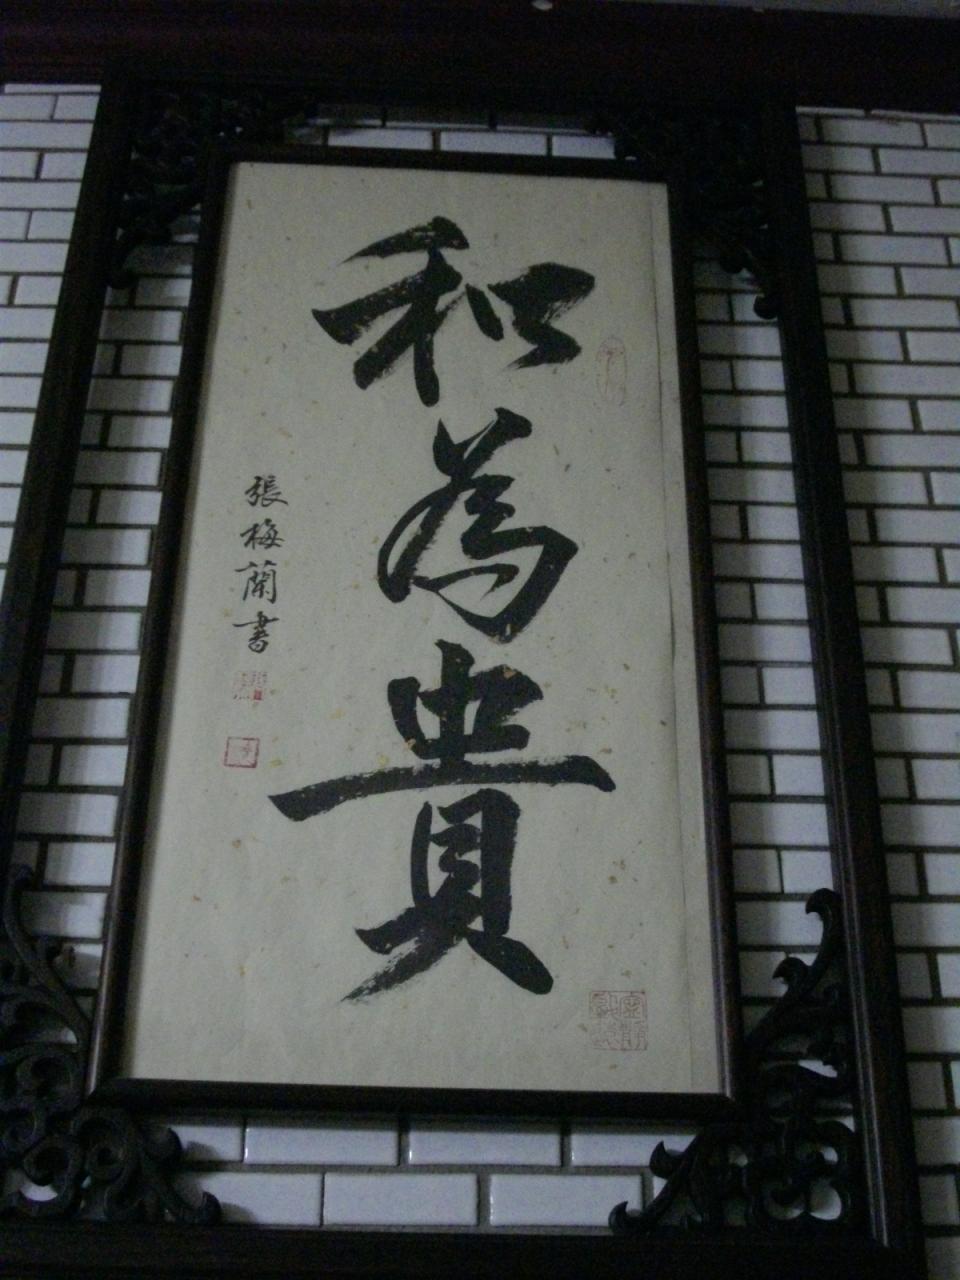 和為貴
張梅蘭書